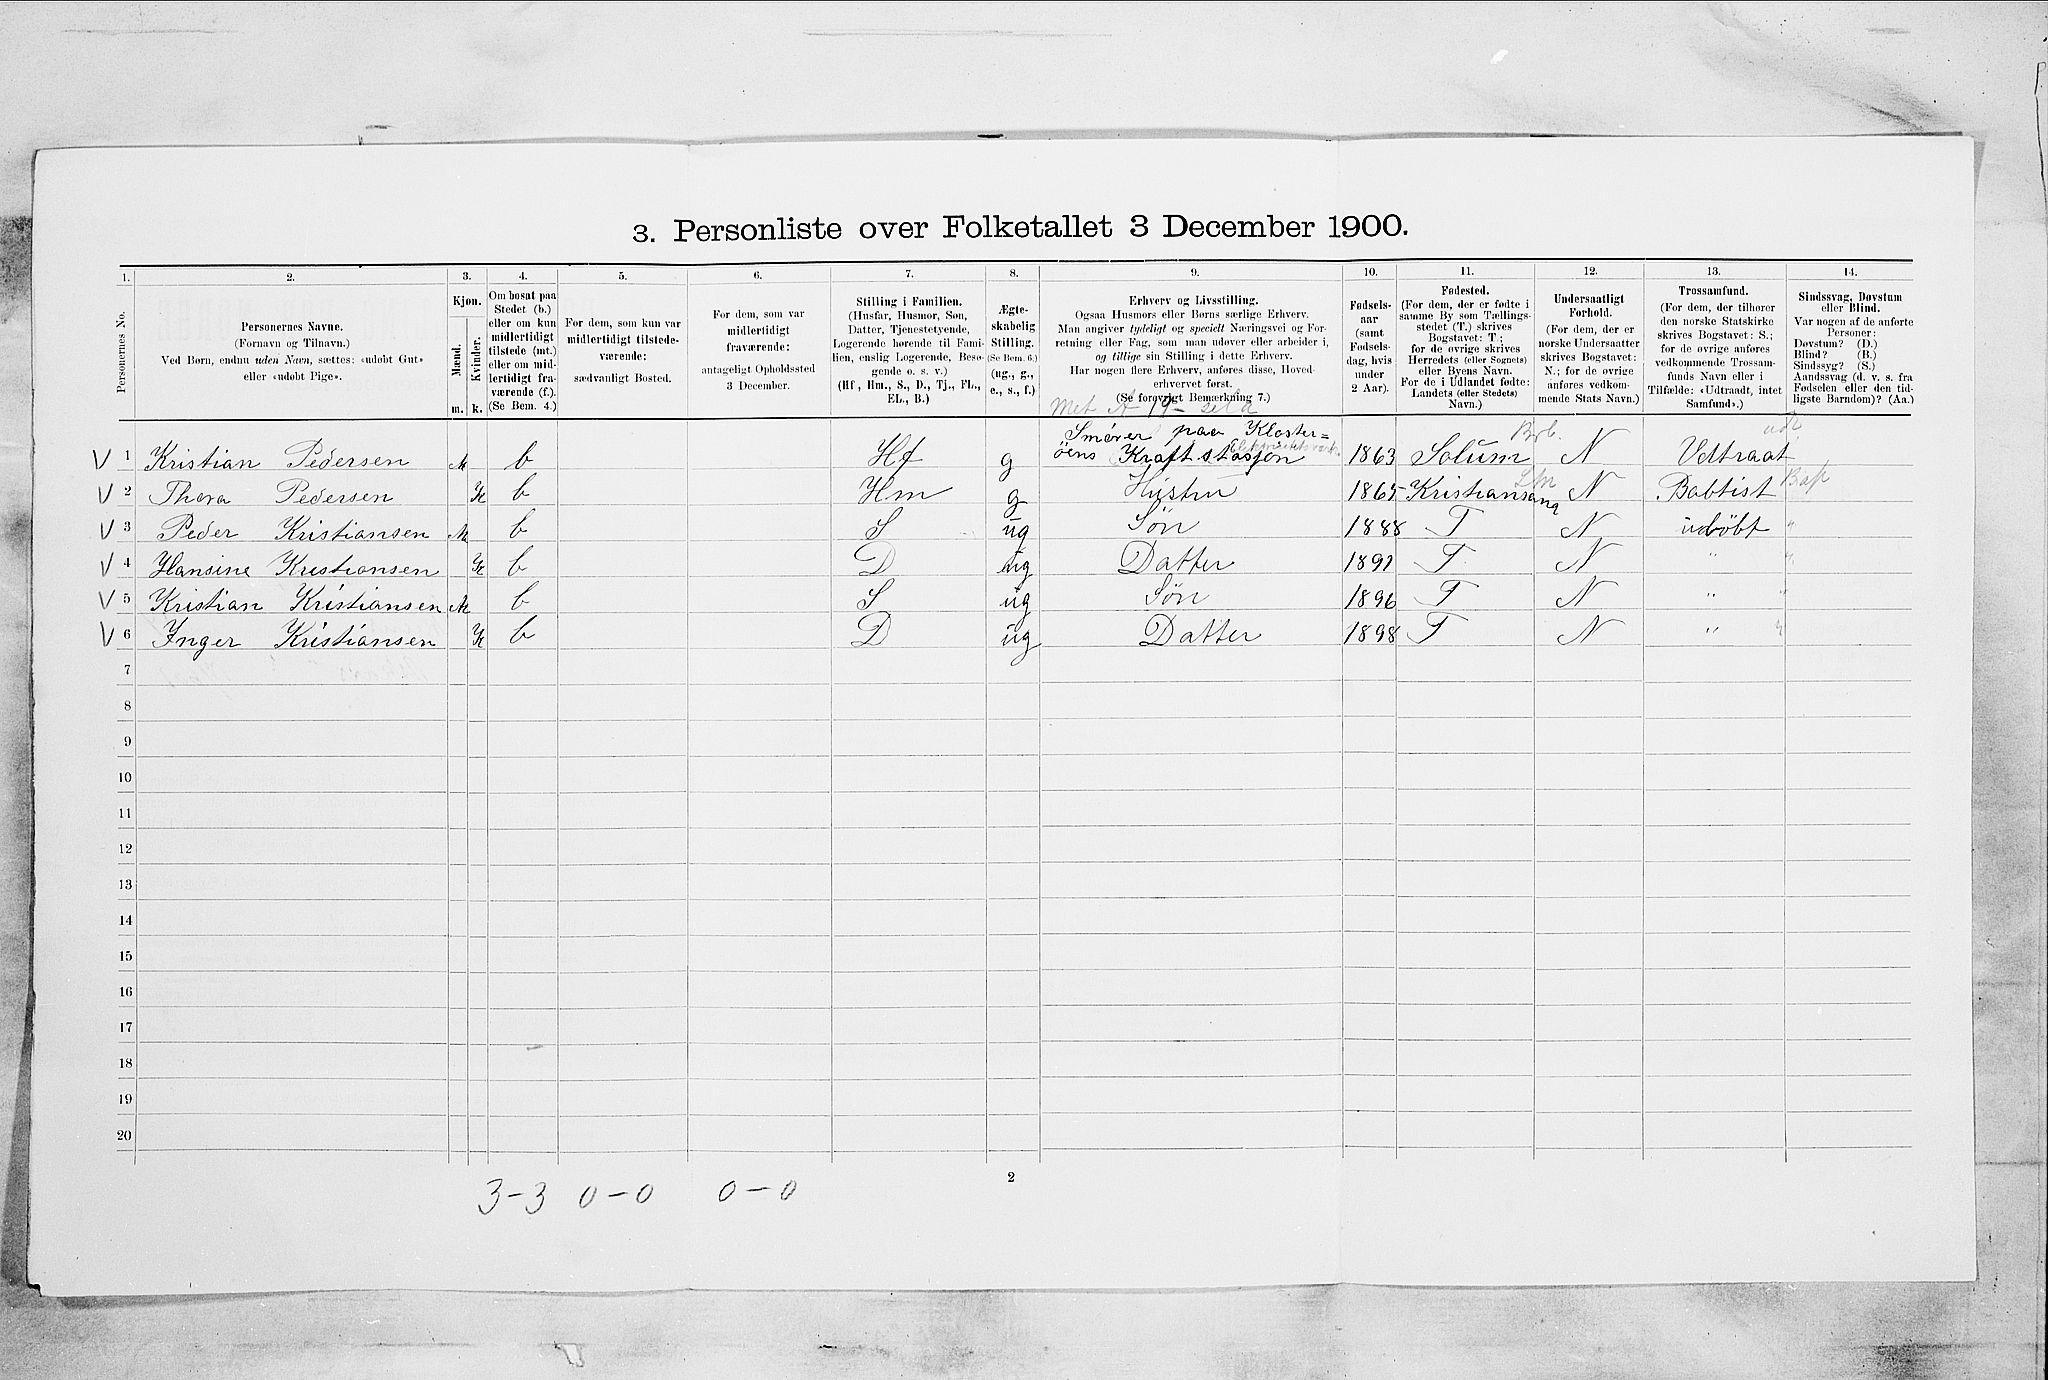 3. Personliste over Folketallet 3 December 1900.
1. 2. 3. 4. 5. 6. 7. 8. 9. 10. 11. 12. 13. 14.
Personernes No.
Personernes Navne.
(Fornavn og Tilnavn.)
Ved Børn, endnu uden Navn, sættes: «udøbt Gut»
eller «udøbt Pige».
Kjøn.
Mænd.
Kvinder.
m. k.
Om bosat paa
Stedet (b.)
eller om kun
midlertidigt
tilstede (mt.)
eller om mid-
lertidigt fra-
værende (f.).
(Se Bem. 4.)
For dem, som kun var
midlertidigt tilstede-
værende:
sædvanligt Bosted.
For dem, som var
midlertidigt
fraværende:
antageligt Opholdssted
3 December.
Stilling i Familien.
(Husfar, Husmor, Søn,
Datter, Tjenestetyende,
Logerende hørende til Fami-
lien, enslig Logerende, Besø-
gende o. s. v.)
(Hf, Hm., S., D., Tj., FL.,
EL., B.)
Ægte-
skabelig
Stilling.
(Se Bem. 6.)
(ug., g.,
e., s., f.)
Erhverv og Livsstilling.
Ogsaa Husmors eller Børns særlige Erhverv.
Man angiver tydeligt og specielt Næringsvei og For-
retning eller Fag, som man udøver eller arbeider i,
og tillige sin Stilling i dette Erhverv.
Har nogen flere Erhverv, anføres disse, Hoved-
erhvervet først.
(Se forøvrigt Bemærkning 7.)
Fødsels-
aar
(samt
Fødsels-
dag, hvis
under
2 Aar).
Fødested.
(For dem, der er fødte i
samme By som Tællings-
stedet (T.) skrives
Bogstavet: T.;
for de øvrige skrives
Herredets (eller Sognets)
eller Byens Navn.
For de i Udlandet fødte:
Landets (eller Stedets)
Navn.)
Undersaatligt
Forhold.
(For dem, der er
norske Undersaatter
skrives Bogstavet:
N.; for de øvrige
anføres vedkom-
mende Stats Navn.)
Trossamfund.
(For dem, der tilhører
den norske Statskirke
skrives Bogstavet: S.;
for de øvrige anføres
vedkommende Trossam-
funds Navn eller i
Tilfælde: «Udtraadt, intet
Samfund».)
Sindssvag, Døvstum
eller Blind.
Var nogen af de anførte
Personer:
Døvstum? (D.)
Blind? (B.)
Sindssyg? (S.)
Aandssvag (d. v. s. fra
Fødselen eller den tid-
ligste Barndom)? (Aa.)
Smører paa Kloster=
V 1 Kristian Pedersen M b Hf g öens Kraftstasjon 1863 Solum N Udtraat
V 2 Thora Pedersen K b Hm g Hustru 1865 Kristiansand N Babtist Bap
V 3 Peder Kristiansen M b S ug Søn 1888 T N udöbt "
V 4 Hansine Kristiansen K b D ug Datter 1891 T N " "
V 5 Kristian Kristiansen M b S ug Søn 1896 T N " "
V 6 Inger Kristiansen K b D ug Datter 1898 T N " "
7
8
9
10
11
12
13
14
15
16
17
18
19
20
2
3-3 0-0 0-0